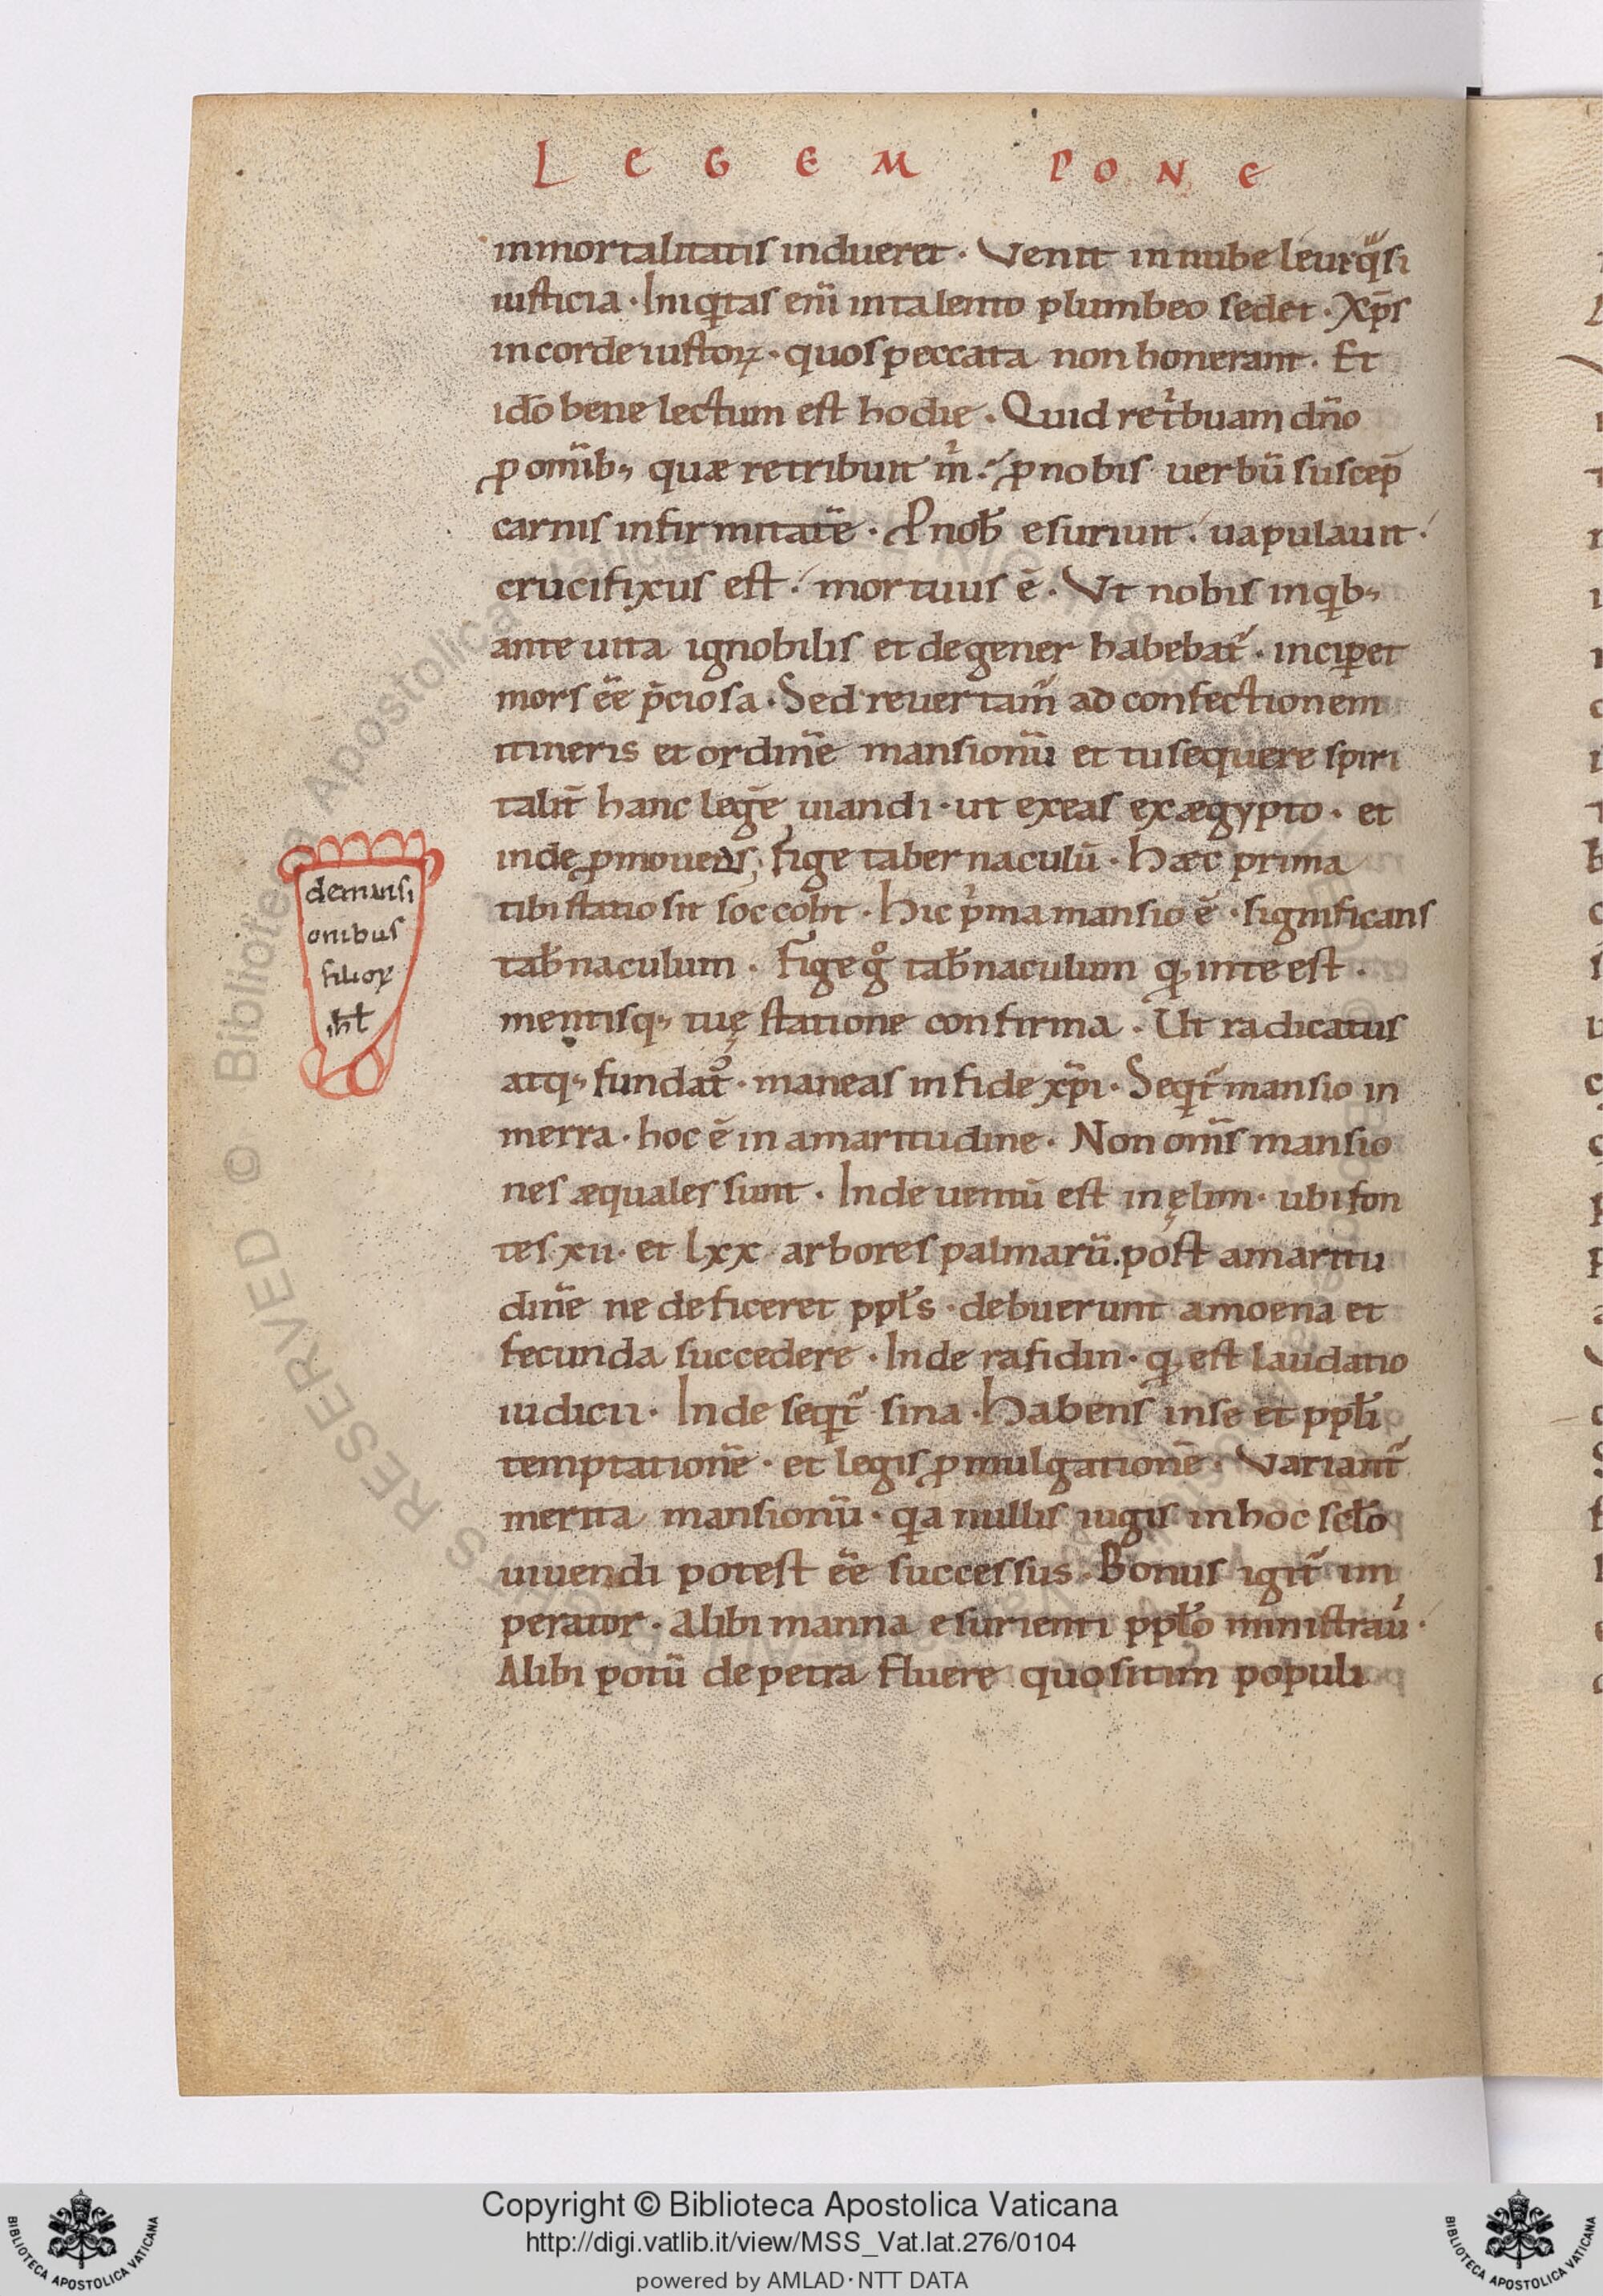 L E G E M P O N E
inmortalitatis indueret · Venit in nube leui ꝗ̃si
iusticia · Iniqͥtas eni᷒ in talento plumbeo sedet · Xp̄s
in corde iustoꝝ · quos peccata non honerant · Et
ido᷒ bene lectum est hodie · Quid retͥbuam dn̄o
ꝓ omīb; quæ retribuit m̓ · ꝓ nobis uerbū suscep̄
carnis infirmitatē · P nob̄ esuriuit · uapulauit ·
crucifixus est · mortuus ē · Vt nobis in qͥb;
ante uita ignobilis et degener habebat᷑ · inciꝑet
mors ēē p̄ciosa · Sed reuertam᷑ ad confectionem
itineris et ordinē mansionū et tu sequere spiri
talit᷑ hanc legē uiandi · ut exeas ex ægypto · et
inde ꝓmouens, fige tabernaculū · Hæc prima
tibi statio sit soccoht · Hic pͥma mansio ē · significans
tab̄naculum · Fige gͦ tab̄naculum ꝙ in te est ·
mentisq; tuę statione confirma · Ut radicatus
atq; fundat᷒ · maneas in fide xp̄i · Seqͥt᷑ mansio in
merra · hoc ē in amaritudine · Non om̄s mansio
nes æquales sunt · Inde uentū est in ęlim · ubi fon
tes xii · et lxx arbores palmarū · post amaritu
dinē ne deficeret ppl̄s · debuerunt amoena et
fecunda succedere · Inde rafidin · ꝙ est laudatio
iudicii · Inde seqͥt᷑ sina · Habens in se et ppl̄i
temptationē · et legis ꝓmulgationē · Variant᷑
merita mansionū · qͥa nullis iugis in hoc scl̄o
uiuendi potest ēē successus · Bonus igit᷑ im
perator · Alibi manna esurienti ppl̄o ministrau᷑ ·
Alibi potū de petra fluere quo sitim populi
demansi
onibus
filioꝝ
ihł
Copyright © Biblioteca Apostolica Vaticana
http://digi.vatlib.it/view/MSS_Vat.lat.276/0104
powered by AMLAD·NTT DATA
BIBLIOTECA APOSTOLICA VATICANA
BIBLIOTECA APOSTOLICA VATICANA